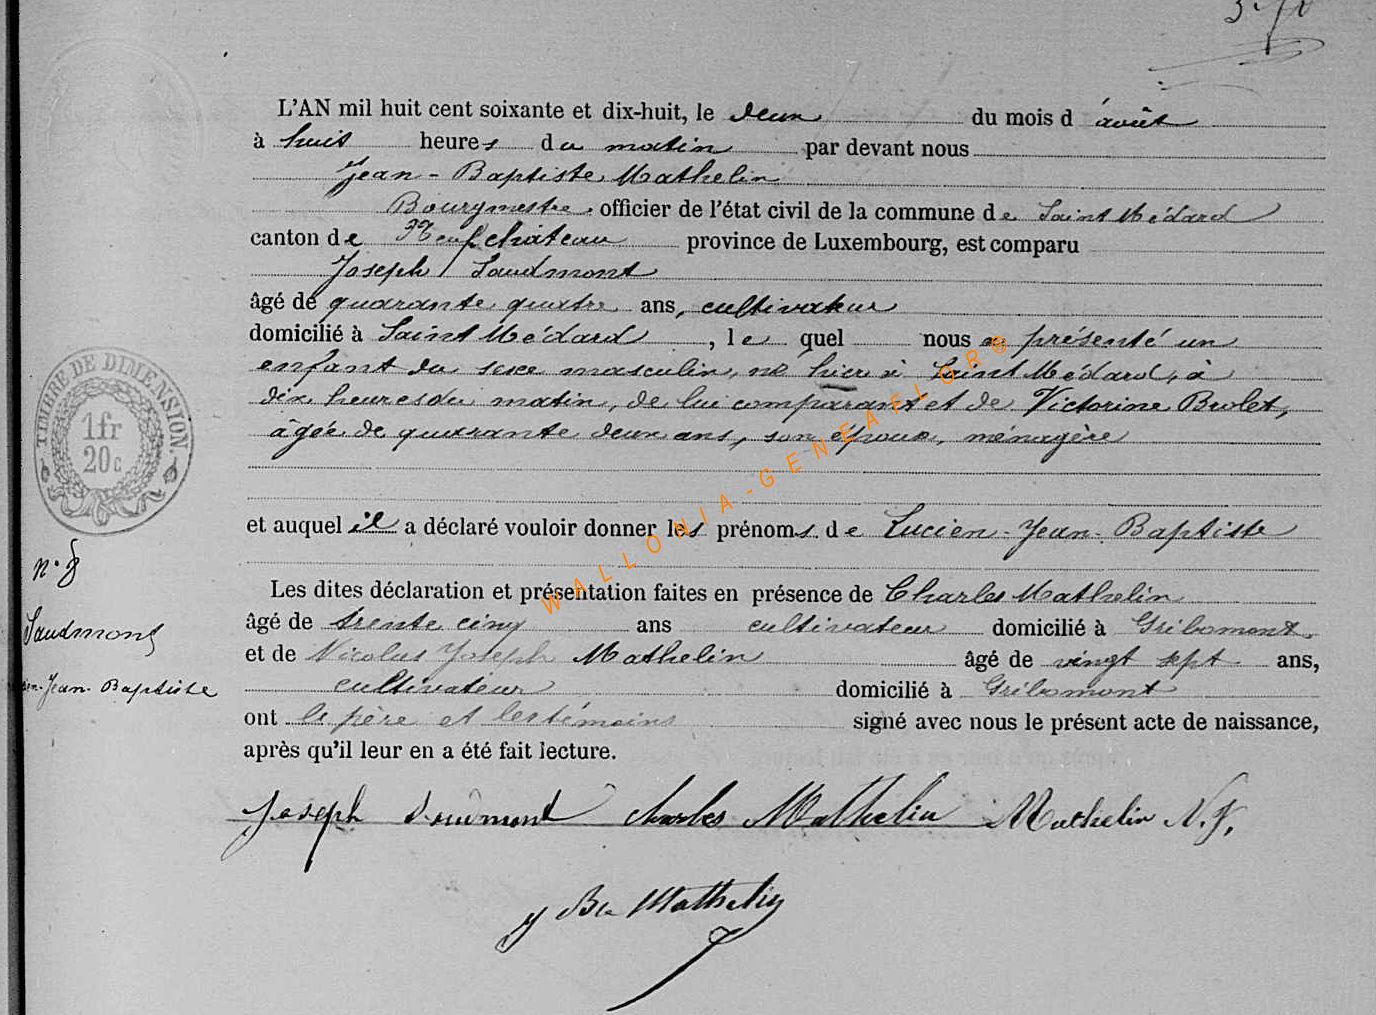 L'AN mil huit cent soixante et dix-huit, le deux du mois d'août
à huit heures du matin par devant nous
Jean-Baptiste Mathelin
Bourgmestre, officier de l'état civil de la commune de Saint Médard
canton de Neufchâteau province de Luxembourg, est comparu
Joseph Saudmont
âgé de quarante quatre ans, cultivateur
domicilié à Saint Médard, le quel nous a présenté un
enfant du sexe masculin, né hier à Saint Médard, à
dix heures du matin, de lui comparant et de Victorine Brolet,
âgée de quarante deux ans, son épouse, ménagère
et auquel il a déclaré vouloir donner les prénoms de Lucien-Jean-Baptiste
Les dites déclaration et présentation faites en présence de Charles Mathelin
âgé de trente cinq ans cultivateur domicilié à Gribomont,
et de Nicolas Joseph Mathelin âgé de vingt sept ans,
cultivateur domicilié à Gribomont
ont le père et les témoins signé avec nous le présent acte de naissance,
après qu'il leur en a été fait lecture.
Joseph Soudmont Charles Mathelin Mathelin N. J.
J Bte Mathelin
TIMBRE DE DIMENSION.
1fr
20c
n° 8
Saudmont
Jean-Baptiste
WALLONIA-GENEAFLOR®